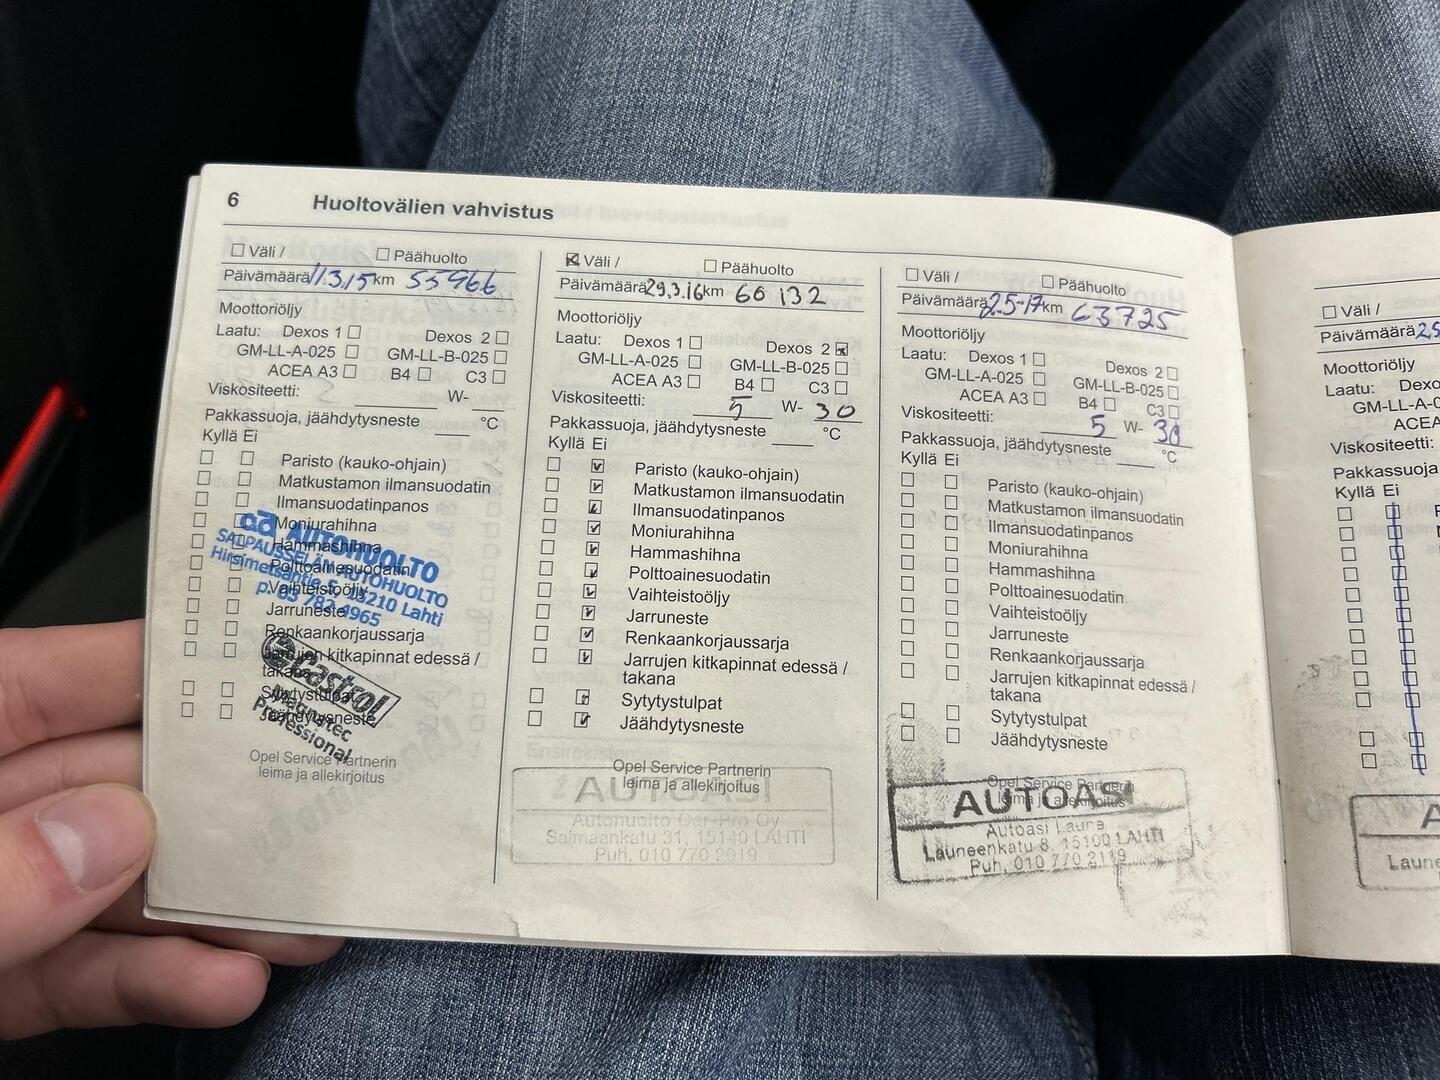 6 Huoltovälien vahvistus
Väli / Päähuolto
Päivämäärä 11.3.15 km 55966
Moottoriöljy
Laatu: Dexos 1 Dexos 2
GM-LL-A-025 GM-LL-B-025
ACEA A3 B4 C3
Viskositeetti: W-
Pakkassuoja, jäähdytysneste °C
Kyllä Ei
Paristo (kauko-ohjain)
Matkustamon ilmansuodatin
Ilmansuodatinpanos
Moniurahihna
Hammashihna
Polttoainesuodatin
Vaihteistoöljy
Jarruneste
Renkaankorjaussarja
Jarrujen kitkapinnat edessä /
takana
Sytytystulpat
Jäähdytysneste
aa AUTOHUOLTO
SALPAUSSELÄN AUTOHUOLTO
Hirsimetsäntie 5, 15210 Lahti
p. 03 782 4965
Castrol
Magnatec
Professional
Opel Service Partnerin
leima ja allekirjoitus
Väli / Päähuolto
Päivämäärä 29.3.16 km 60 132
Moottoriöljy
Laatu: Dexos 1 Dexos 2
GM-LL-A-025 GM-LL-B-025
ACEA A3 B4 C3
Viskositeetti: 5 W- 30
Pakkassuoja, jäähdytysneste °C
Kyllä Ei
Paristo (kauko-ohjain)
Matkustamon ilmansuodatin
Ilmansuodatinpanos
Moniurahihna
Hammashihna
Polttoainesuodatin
Vaihteistoöljy
Jarruneste
Renkaankorjaussarja
Jarrujen kitkapinnat edessä /
takana
Sytytystulpat
Jäähdytysneste
Opel Service Partnerin
leima ja allekirjoitus
AUTOASI
Autohuolto Car-Pro Oy
Salmaankatu 31, 15140 LAHTI
Puh. 010 770 2019
Väli / Päähuolto
Päivämäärä 2.5-17 km 63725
Moottoriöljy
Laatu: Dexos 1 Dexos 2
GM-LL-A-025 GM-LL-B-025
ACEA A3 B4 C3
Viskositeetti: 5 W- 30
Pakkassuoja, jäähdytysneste °C
Kyllä Ei
Paristo (kauko-ohjain)
Matkustamon ilmansuodatin
Ilmansuodatinpanos
Moniurahihna
Hammashihna
Polttoainesuodatin
Vaihteistoöljy
Jarruneste
Renkaankorjaussarja
Jarrujen kitkapinnat edessä /
takana
Sytytystulpat
Jäähdytysneste
Opel Service Partnerin
leima ja allekirjoitus
AUTOASI
Autoasi Laune
Launeenkatu 8, 15100 LAHTI
Puh. 010 770 2119
Väli /
Päivämäärä 25
Moottoriöljy
Laatu: Dexo
GM-LL-A-0
ACEA
Viskositeetti:
Pakkassuoja
Kyllä Ei
A
Laune